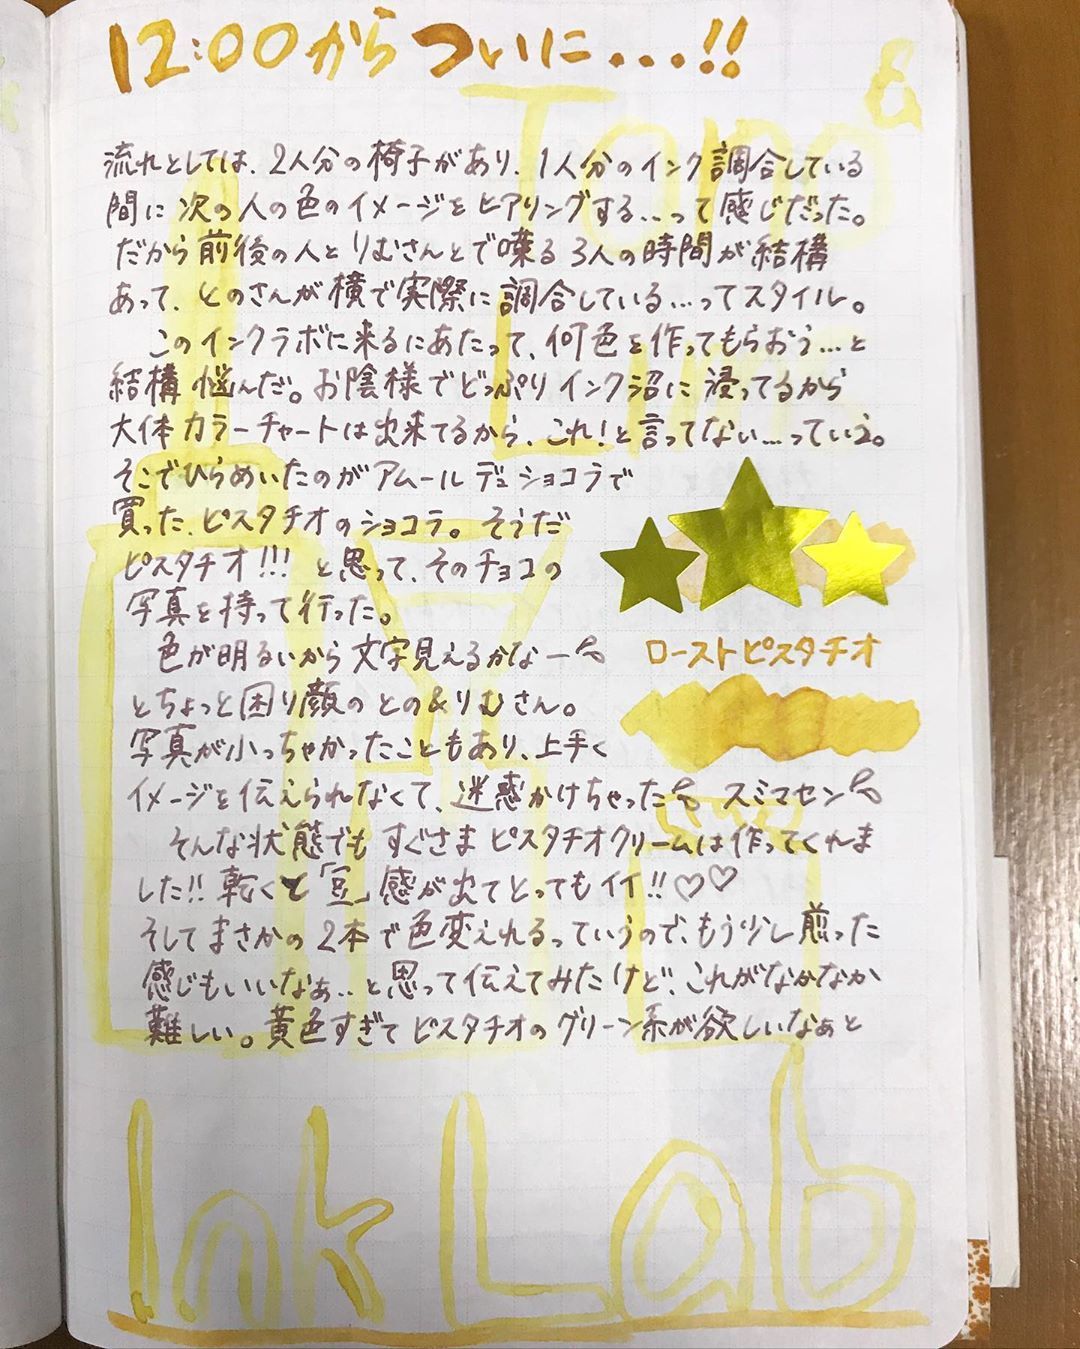 12:00からついに...!!
Tono
&
Lims
流れとしては、2人分の椅子があり、1人分のインク調合している
間に次の人の色のイメージをヒアリングする...って感じだった。
だから前後の人とりむさんとで喋る3人の時間が結構
あって、とのさんが横で実際に調合している...ってスタイル。
このインクラボに来るにあたって、何色を作ってもらおう...と
結構悩んだ。お陰様でどっぷりインク沼に浸ってるから
大体カラーチャートは出来てるから、これ!と言ってない...っていう。
そこでひらめいたのがアムールデュショコラで
買った、ピスタチオのショコラ。そうだ
ピスタチオ!!!と思って、そのチョコの
写真を持って行った。
色が明るいから文字見えるかなー
とちょっと困り顔のとの&りむさん。
写真が小っちゃかったこともあり、上手く
イメージを伝えられなくて、迷惑かけちゃった スミマセン
そんな状態でもすぐさまピスタチオクリームは作ってくれま
した!!乾くと「豆」感が出てとってもイイ!!♡♡
そしてまさかの2本で色変えれるっていうので、もう少し煎った
感じもいいなぁ..と思って伝えてみたけど、これがなかなか
難しい。黄色すぎてピスタチオのグリーン系が欲しいなぁと
ローストピスタチオ
Ink Lab